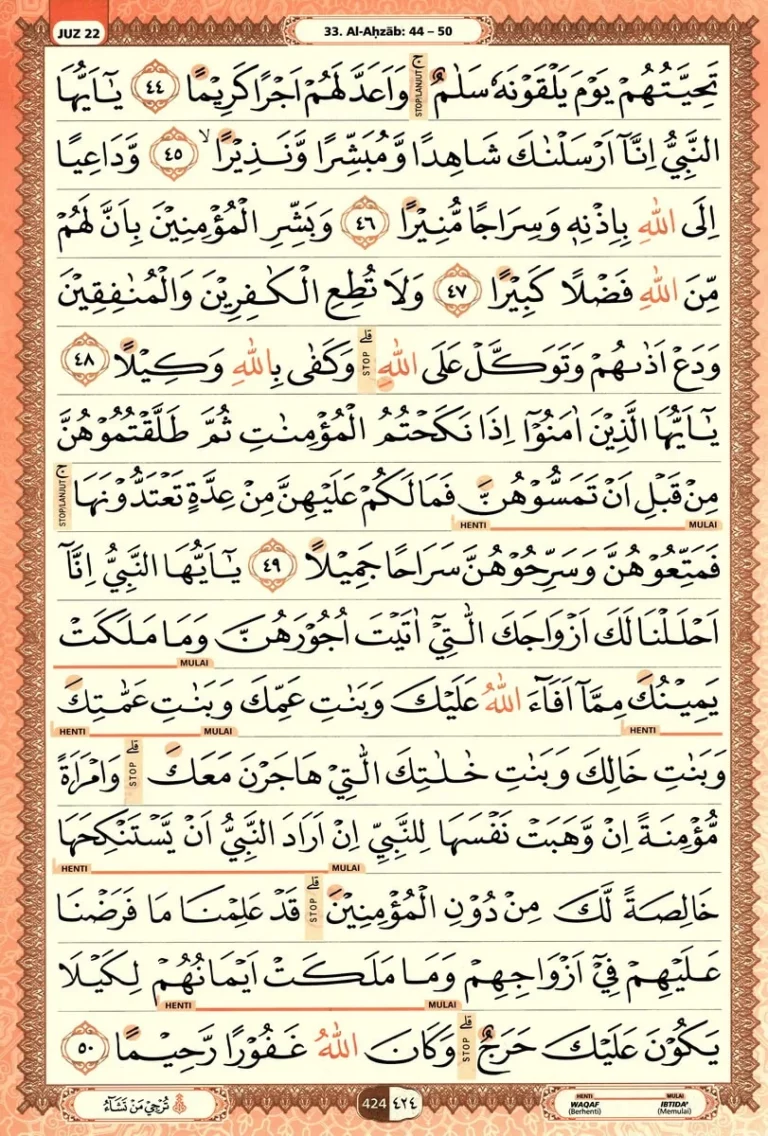 JUZ 22
33. Al-Aḥzāb: 44 – 50
تَحِيَّتُهُمْ يَوْمَ يَلْقَوْنَهٗ سَلٰمٌ ۚ STOP/LANJUT وَاَعَدَّ لَهُمْ اَجْرًا كَرِيْمًا ٤٤ يٰٓاَيُّهَا
النَّبِيُّ اِنَّآ اَرْسَلْنٰكَ شَاهِدًا وَّمُبَشِّرًا وَّنَذِيْرًا ۙ ٤٥ وَّدَاعِيًا
اِلَى اللّٰهِ بِاِذْنِهٖ وَسِرَاجًا مُّنِيْرًا ٤٦ وَبَشِّرِ الْمُؤْمِنِيْنَ بِاَنَّ لَهُمْ
مِّنَ اللّٰهِ فَضْلًا كَبِيْرًا ٤٧ وَلَا تُطِعِ الْكٰفِرِيْنَ وَالْمُنٰفِقِيْنَ
وَدَعْ اَذٰىهُمْ وَتَوَكَّلْ عَلَى اللّٰهِ ۗ STOP وَكَفٰى بِاللّٰهِ وَكِيْلًا ٤٨
يٰٓاَيُّهَا الَّذِيْنَ اٰمَنُوْٓا اِذَا نَكَحْتُمُ الْمُؤْمِنٰتِ ثُمَّ طَلَّقْتُمُوْهُنَّ
مِنْ قَبْلِ اَنْ تَمَسُّوْهُنَّ فَمَا لَكُمْ عَلَيْهِنَّ مِنْ عِدَّةٍ تَعْتَدُّوْنَهَا ۚ STOP/LANJUT
MULAI HENTI
فَمَتِّعُوْهُنَّ وَسَرِّحُوْهُنَّ سَرَاحًا جَمِيْلًا ٤٩ يٰٓاَيُّهَا النَّبِيُّ اِنَّآ
اَحْلَلْنَا لَكَ اَزْوَاجَكَ الّٰتِيْٓ اٰتَيْتَ اُجُوْرَهُنَّ وَمَا مَلَكَتْ
MULAI
يَمِيْنُكَ مِمَّآ اَفَاۤءَ اللّٰهُ عَلَيْكَ وَبَنٰتِ عَمِّكَ وَبَنٰتِ عَمّٰتِكَ
HENTI MULAI HENTI
وَبَنٰتِ خَالِكَ وَبَنٰتِ خٰلٰتِكَ الّٰتِيْ هَاجَرْنَ مَعَكَ ۗ STOP وَامْرَاَةً
مُّؤْمِنَةً اِنْ وَّهَبَتْ نَفْسَهَا لِلنَّبِيِّ اِنْ اَرَادَ النَّبِيُّ اَنْ يَّسْتَنْكِحَهَا
MULAI HENTI
خَالِصَةً لَّكَ مِنْ دُوْنِ الْمُؤْمِنِيْنَ ۗ STOP قَدْ عَلِمْنَا مَا فَرَضْنَا
عَلَيْهِمْ فِيْٓ اَزْوَاجِهِمْ وَمَا مَلَكَتْ اَيْمَانُهُمْ لِكَيْلَا
MULAI HENTI
يَكُوْنَ عَلَيْكَ حَرَجٌ ۗ STOP وَكَانَ اللّٰهُ غَفُوْرًا رَّحِيْمًا ٥٠
تُرْجِيْ مَنْ تَشَاۤءُ
424 ٤٢٤
HENTI MULAI
WAQAF IBTIDA'
(Berhenti) (Memulai)